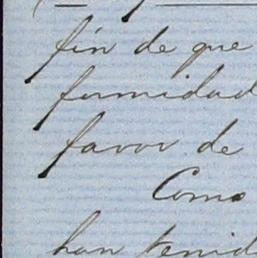 fin de que
formidad
favor de
Como
han tenid